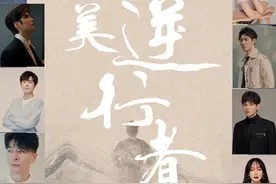 美逆行者